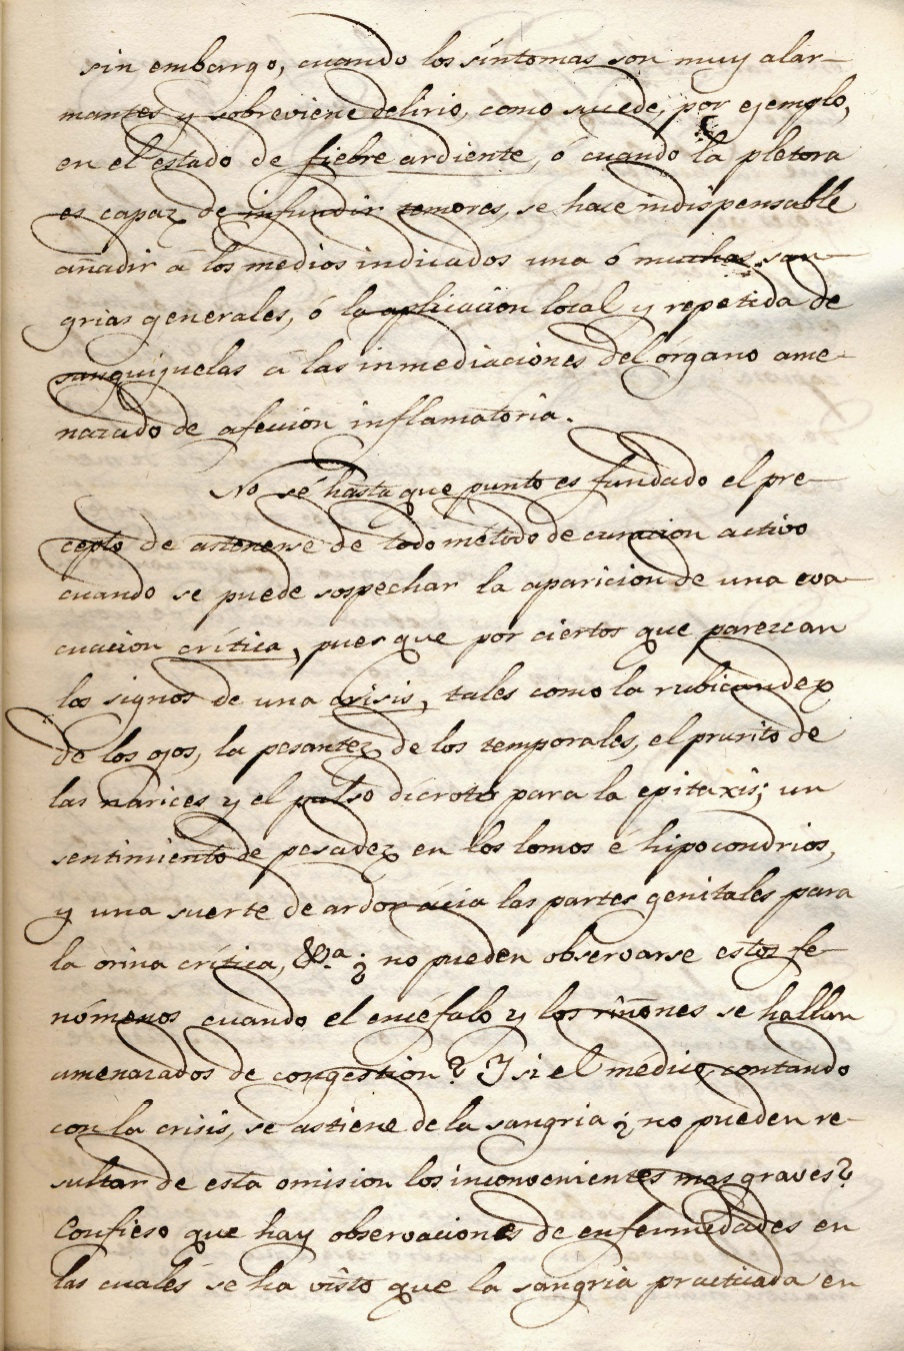 sin embargo, cuando los síntomas son muy alar-
mantes y sobreviene delirio, como sucede, por ejemplo,
en el estado de fiebre ardiente, ó cuando la pletora
es capaz de infundir temores, se hace indispensable
añadir á los medios indicados una ó muchas san-
grias generales, ó la aplicacion local y repetida de
sanguijuelas á las inmediaciones del órgano ame-
nazado de afeccion inflamatoria.
No sé hasta que punto es fundado el pre-
cepto de astenerse de todo método de curacion activo
cuando se puede sospechar la aparicion de una eva-
cuacion crítica, pues que por ciertos que parezcan
los signos de una crisis, tales como la rubicundez
de los ojos, la pesantez de los temporales, el prurito de
las narices y el pulso dícroto para la epitaxis; un
sentimiento de pesadez en los lomos é hipocondrios,
y una suerte de ardor ácia las partes genitales para
la orina crítica, &ª ¿ no pueden observarse estos fe-
nómenos cuando el encéfalo y los riñones se hallan
amenazados de congestion? Y si el médico, contando
con la crisis, se astiene de la sangria ¿ no pueden re-
sultar de esta omision los inconvenientes mas graves?
Confieso que hay observaciones de enfermedades en
las cuales se ha visto que la sangria practicada en